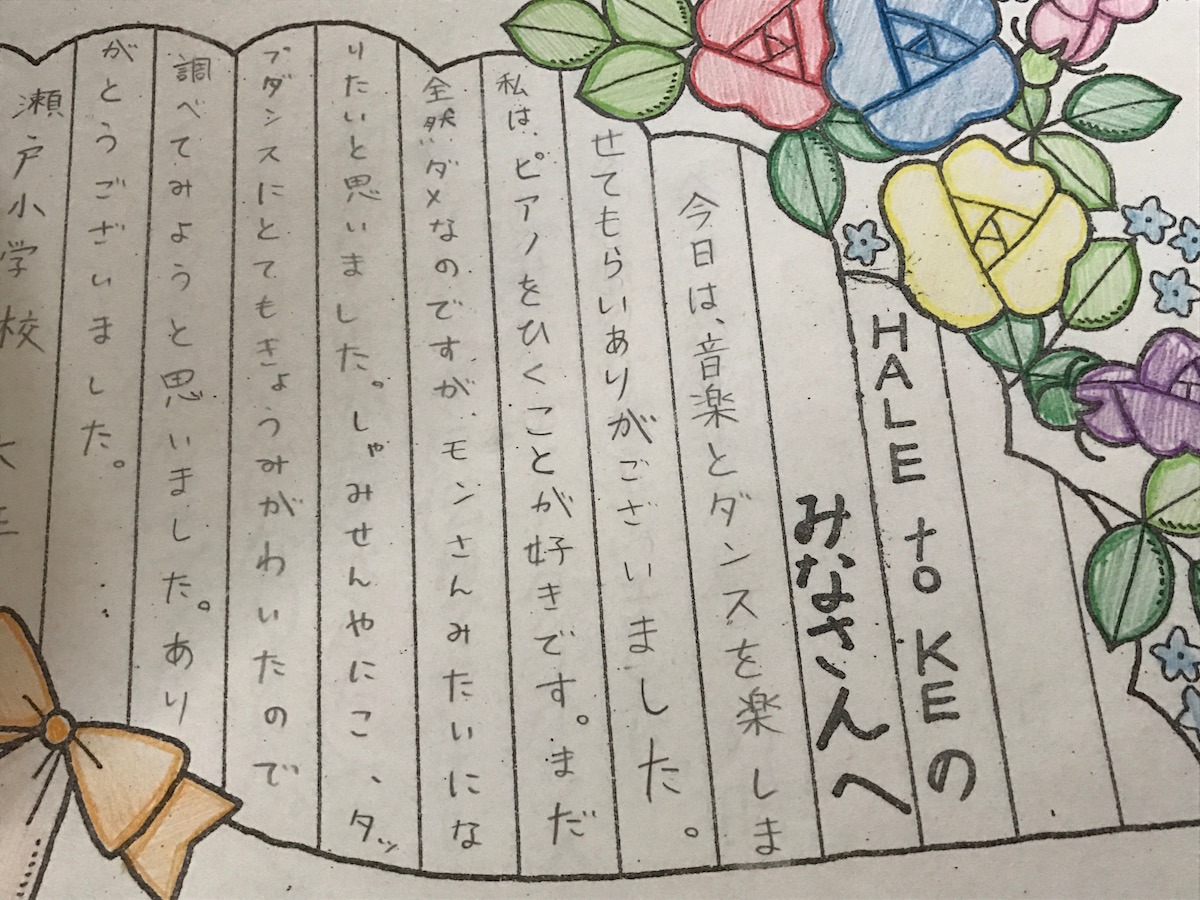 HALE to KEの
みなさんへ
今日は、音楽とダンスを楽しま
せてもらいありがございました。
私は、ピアノをひくことが好きです。まだ
全然ダメなのですが、モンさんみたいにな
りたいと思いました。しゃみせんやにこ、タッ
プダンスにとてもきょうみがわいたので
調べてみようと思いました。あり
がとうございました。
瀬戸小学校